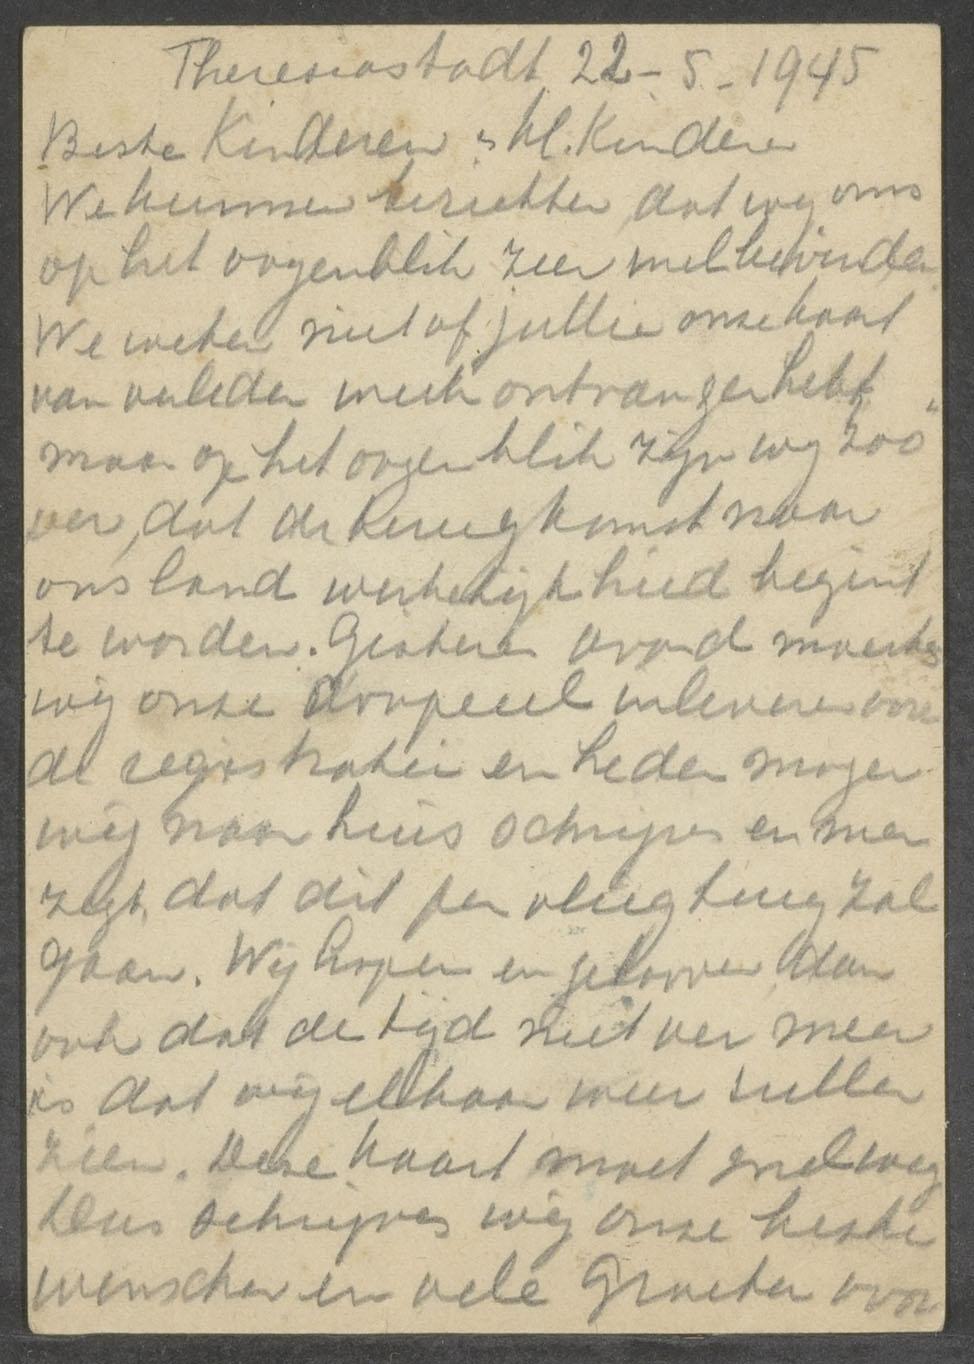 Theresiastadt 22-5-1945
Beste Kinderen & Kl. Kinderen
We kunnen berichten dat wij ons
op het oogenblik zeer wel bevinden.
We weten niet of jullie onze kaart
van verleden week ontvangen hebt
maar op het oogenblik zijn wij zoo
ver, dat de terugkomst naar
ons land werkelijkheid begint
te worden. Gisteren avond moesten
wij onze inleveren voor
de registratie en heden mogen
wij naar huis schrijven en men
zegt, dat dit per vliegtuig zal
gaan. Wij hopen en gelooven dan
ook dat de tijd niet ver meer
is dat wij elkaar weer zullen
zien. Deze kaart moet snel weg
Dus schrijven wij onze beste
wenschen en vele Groeten voor